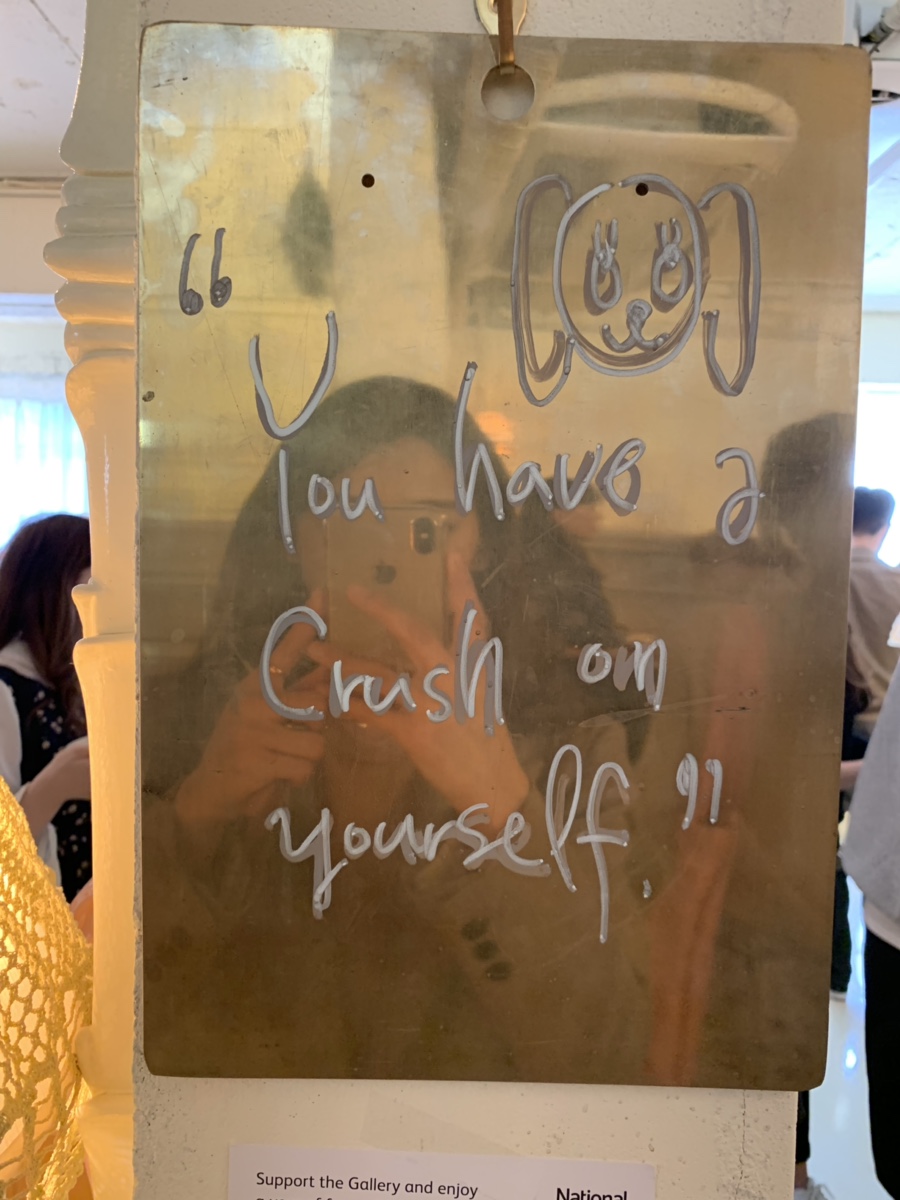 “
You have a
Crush on
yourself.”
Support the Gallery and enjoy
National